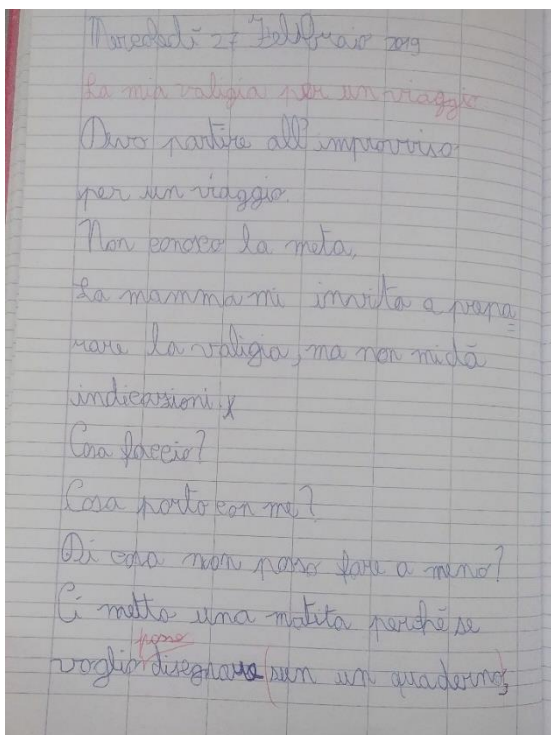 Mercoledì 27 Febbraio 2019
La mia valigia per un viaggio
Devo partire all'improvviso
per un viaggio.
Non conosco la meta,
La mamma mi invita a prepa=
rare la valigia, ma non mi dà
indicazioni.
Cosa faccio?
Cosa porto con me?
Di cosa non posso fare a meno?
Ci metto una matita perché se
posso
voglio disegnare (sun un quaderno)